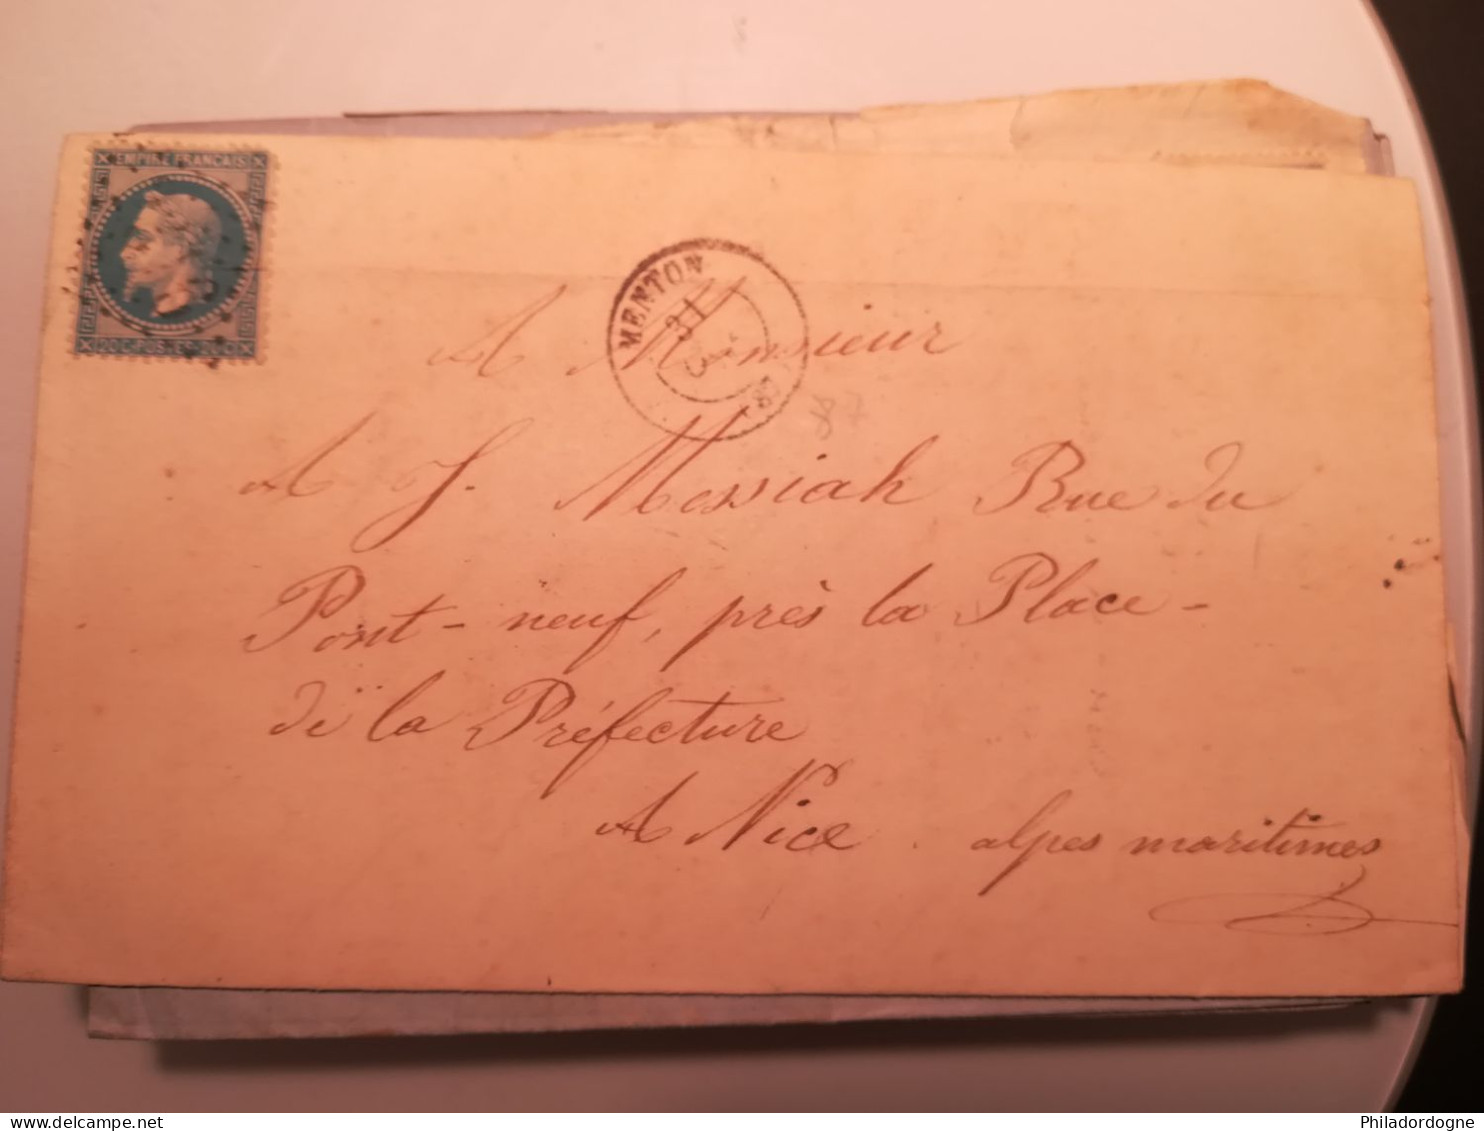 EMPIRE FRANCAIS
20 C. POSTES 20 C
MENTON
31
(87)
87
A Monsieur
A J. Messiah Rue du
Pont-neuf, près la Place-
dë la Préfecture
A Nice. alpes maritimes
delcampe.net
Philadordogne